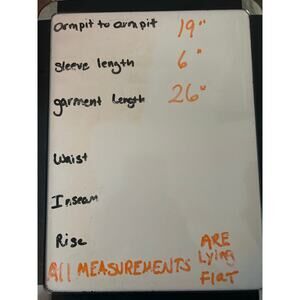 Armpit to armpit 19"
Sleeve length 6"
garment Length 26"
Waist
Inseam
Rise
All MEASUREMENTS ARE
Lying
FlaT